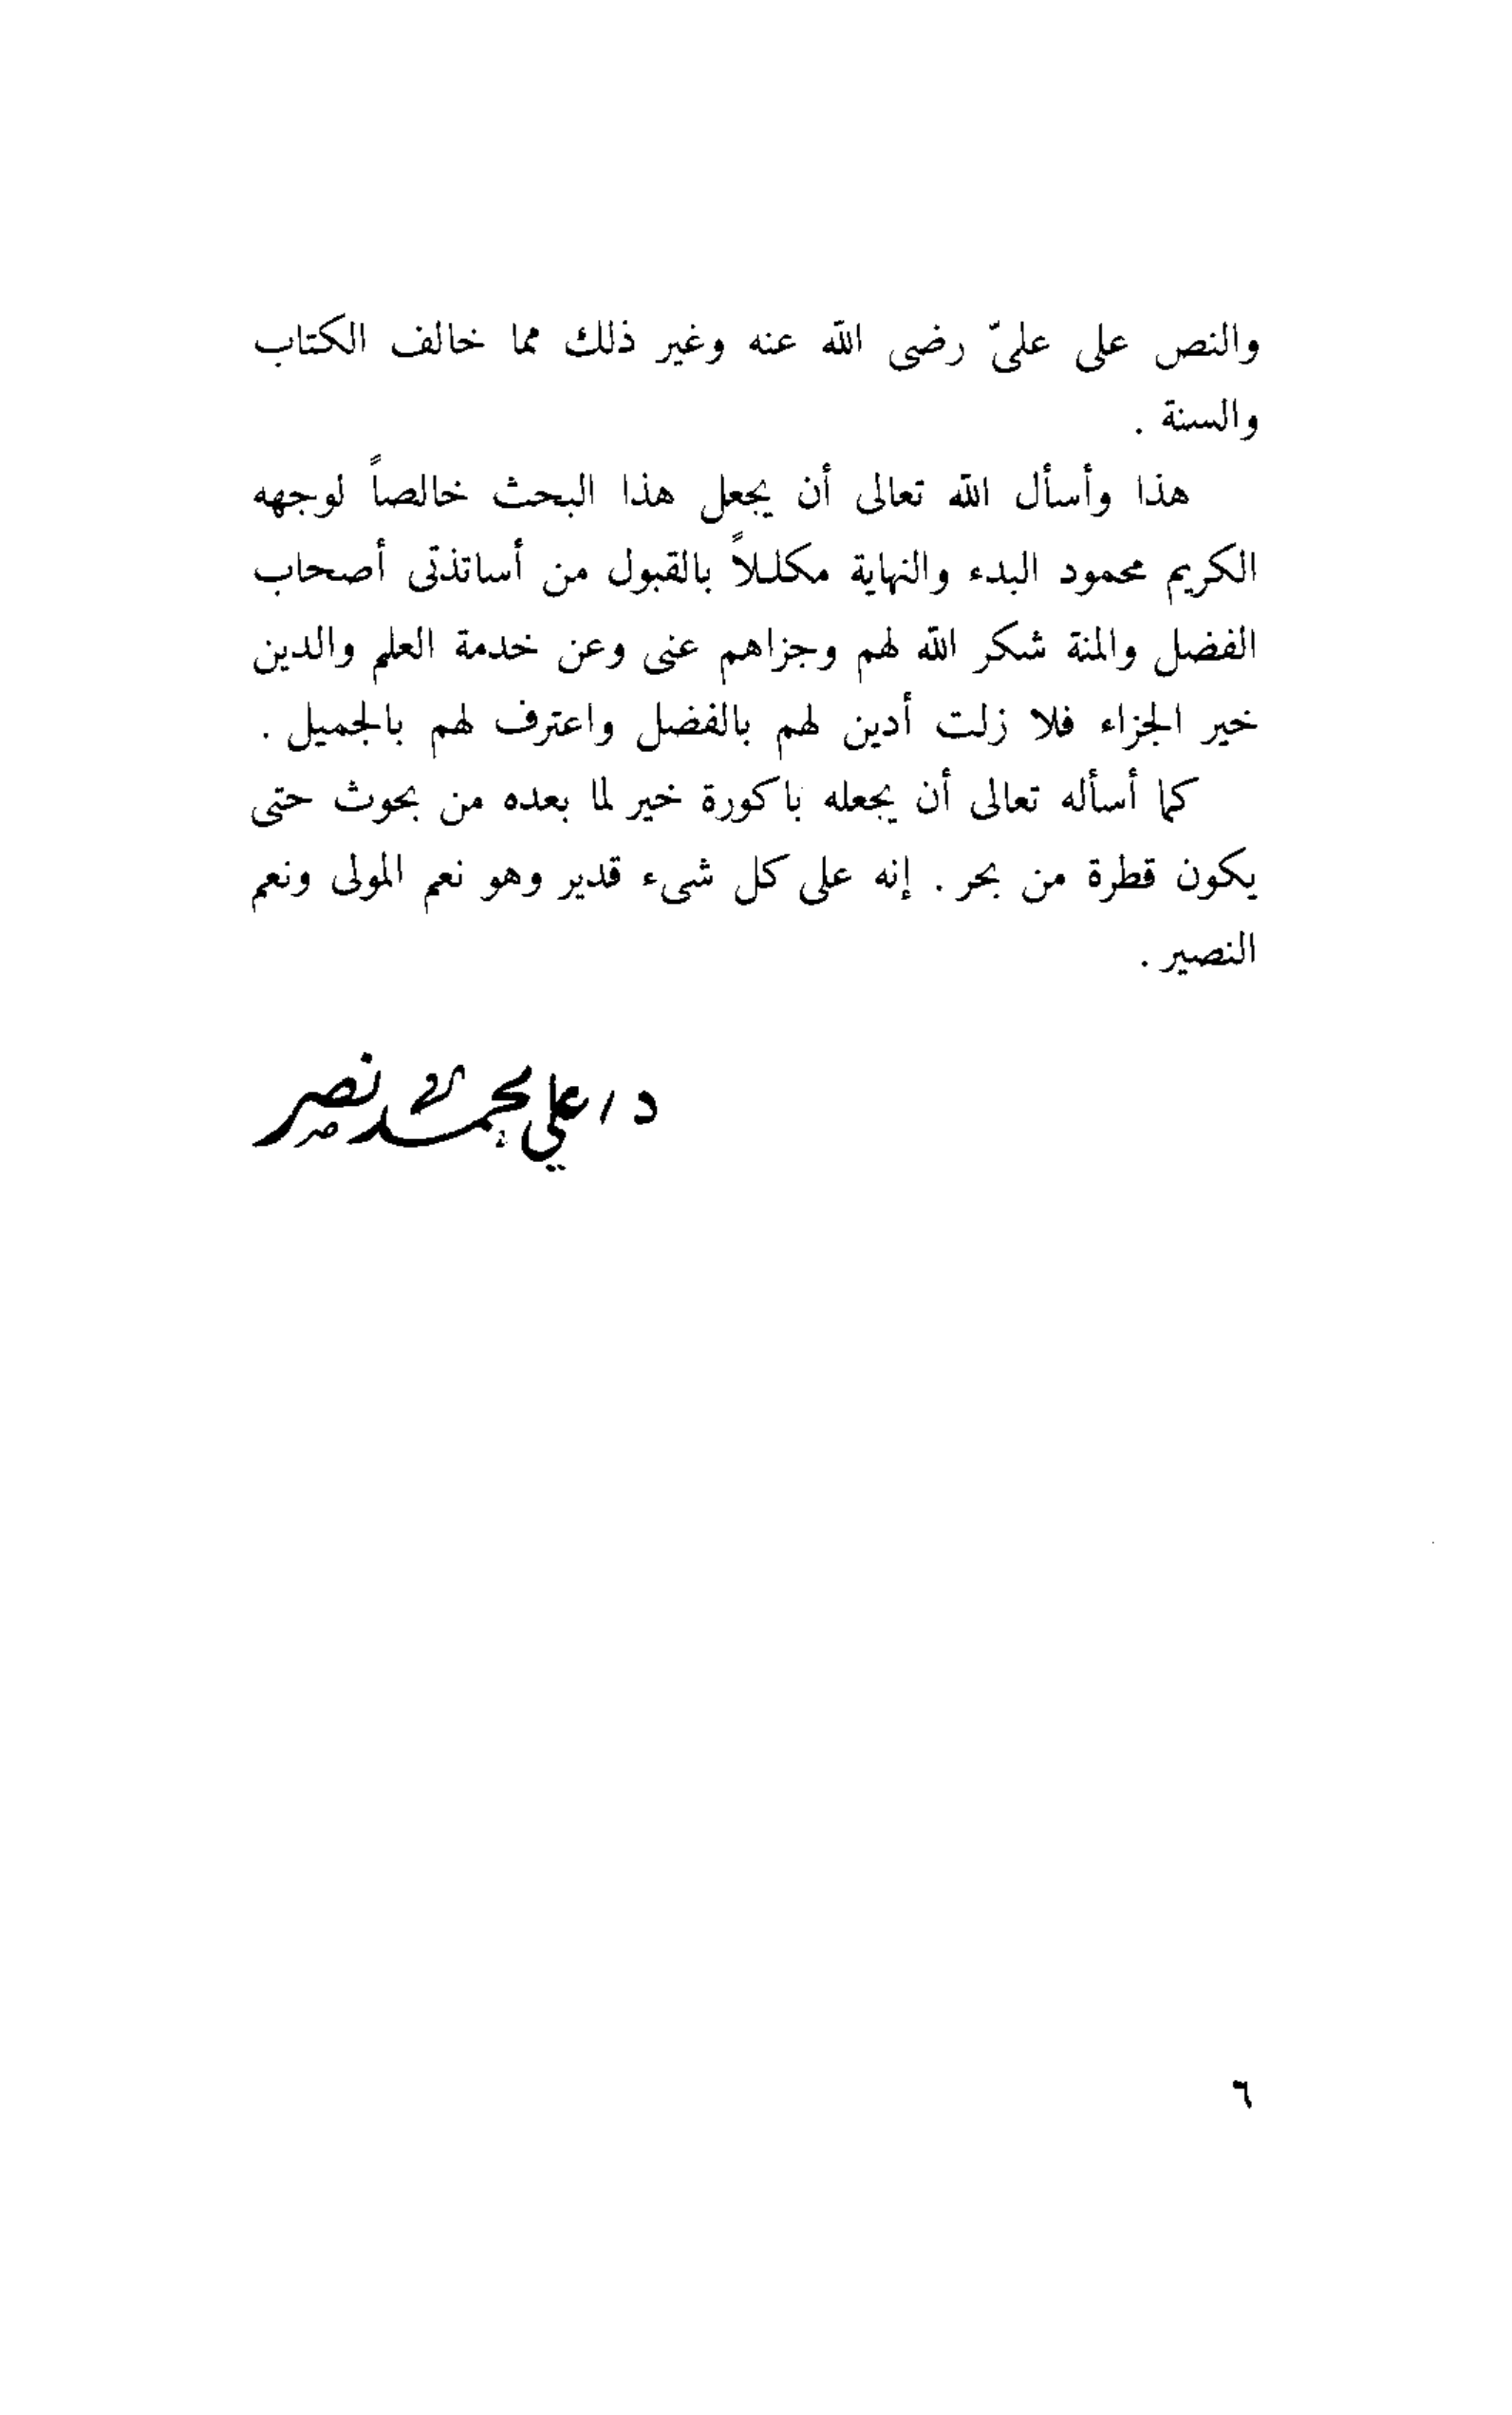 والنص على علىّ رضى الله عنه وغير ذلك مما خالف الكتاب
والسنة .
هذا وأسأل الله تعالى أن يجعل هذا البحث خالصاً لوجهه
الكريم محمود البدء والنهاية مكللاً بالقبول من أساتذتى أصحاب
الفضل والمنة شكر الله لهم وجزاهم عنى وعن خدمة العلم والدين
خير الجزاء فلا زلت أدين لهم بالفضل واعترف لهم بالجميل .
كما أسأله تعالى أن يجعله باكورة خير لما بعده من بحوث حتى
يكون قطرة من بحر . إنه على كل شىء قدير وهو نعم المولى ونعم
النصير .
د / علي محمد نصر
٦